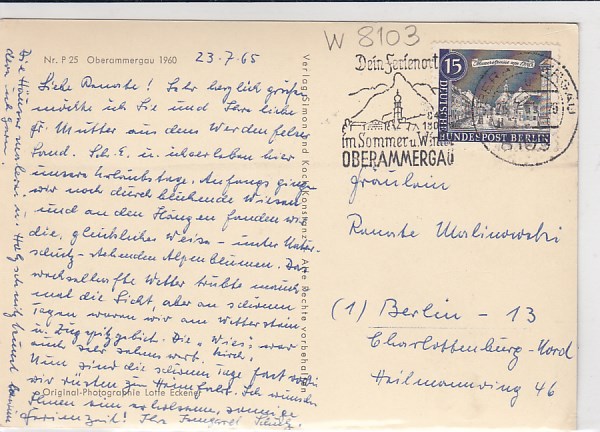 W 8103
Nr. P 25 Oberammergau 1960
23.7.65
Liebe Renate! Sehr herzlich grüßen
möchte ich Sie und Ihre liebe
Fr. Mutter aus dem Werdenfelser
Land. Sch. E. u. ich erleben hier
unsere Urlaubstage. Anfangs gingen
wir noch durch blühende Wiesen
und an den Hängen fanden wir
die, glücklicher Weise - unter Natur-
schutz - stehenden Alpenblumen. Das
wechselhafte Wetter trübte manch-
mal die Sicht, aber an schönen
Tagen waren wir am Wetterstein
u. Zugspitzgebiet. Die "Wies" war
auch sehr sehenswert. Kirch.
Nun sind die schönen Tage fast vorbei
wir rüsten zur Heimfahrt. Ich wünsche
Ihnen eine erholsame, sonnige
Ferienzeit! Ihre Irmgard Schulz.
Die Häuser malerei u. Holzschnitzkunst
dem
Original-Photographie Lotte Eckener
Verlag Simon und Koch, Konstanz · Alle Rechte vorbehalten
Dein Ferienort
im Sommer u. Winter
OBERAMMERGAU
15
DEUTSCHE
BUNDESPOST BERLIN
8103
Fräulein
Renate Malinowski
(1) Berlin - 13
Charlottenburg-Nord
Heilmannring 46